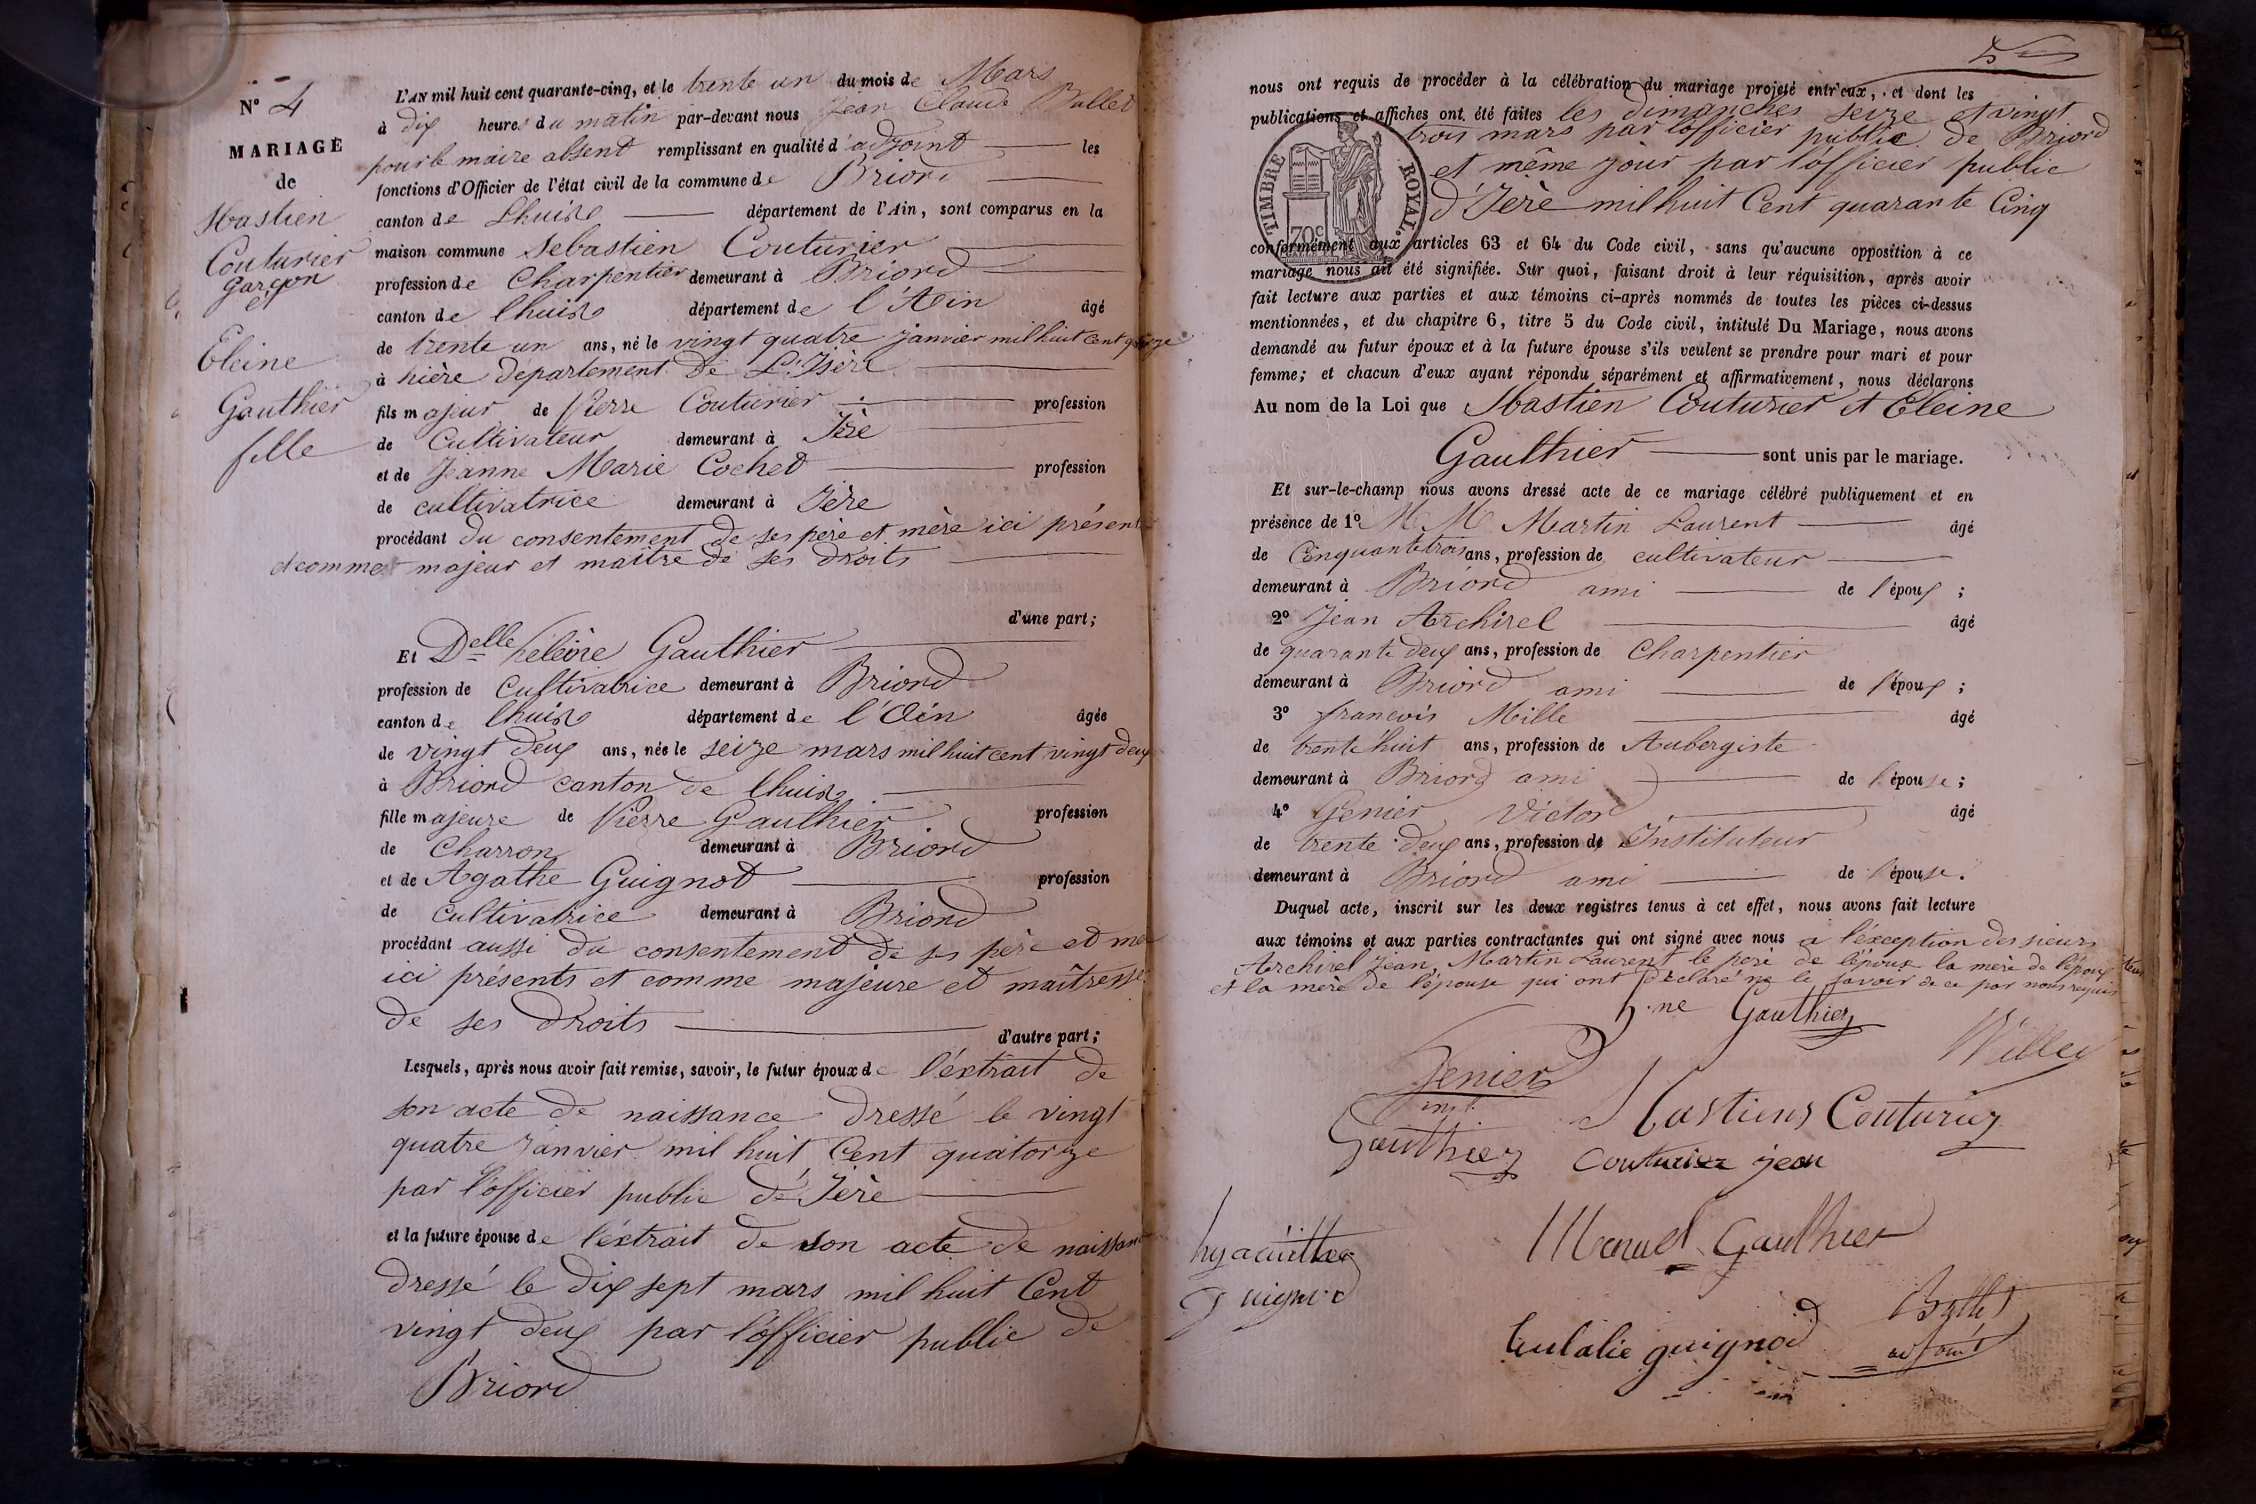 N° 4
MARIAGE
de
Sbastien
Couturier
garçon
et
Eleine
Gauthier
fille
L'AN mil huit cent quarante-cinq, et le trente un du mois de Mars
à dix heures du matin par-devant nous Jean Claude Ballet
pour le maire absent remplissant en qualité d'adjoint les
fonctions d'Officier de l'état civil de la commune de Briord
canton de Lhuis département de l'Ain, sont comparus en la
maison commune Sebastien Couturier
profession de Charpentier demeurant à Briord
canton de lhuis département de l'Ain âgé
de trente un ans, né le vingt quatre janvier mil huit cent quatorze
à hière département De L'Isère
fils majeur de Pierre Couturier profession
de Cultivateur demeurant à Ière
et de Jeanne Marie Cochet profession
de cultivatrice demeurant à Ière
procédant du consentement de ses père et mère ici présents
et comme majeur et maître de ses droits
d'une part;
Et Delle Gauthier
profession de Cultivatrice demeurant à Briord
canton de lhuis département de l'Ain âgée
de vingt deux ans, née le seize mars mil huit cent vingt deux
à Briord canton de lhuis
fille majeure de Pierre Gaulthier profession
de Charron demeurant à Briord
et de Agathe Guignod profession
de Cultivatrice demeurant à Briord
procédant aussi du consentement de ses père et mè
ici présents et comme majeure et maîtresse
de ses droits
d'autre part;
Lesquels, après nous avoir fait remise, savoir, le futur époux de l'éxtrait de
son acte de naissance dressé le vingt
quatre Janvier mil huit Cent quatorze
par l'officier public de Ière
et la future épouse de l'éxtrait de son acte de naissance
dressé le dix sept mars mil huit Cent
vingt deux par l'officier public de
Briord
5
nous ont requis de procéder à la célébration du mariage projeté entr'eux, et dont les
publications et affiches ont été faites les dimanches seize et vingt
trois mars par l'officier public de Briord
et même jour par l'officier public
d'Ière mil huit Cent quarante Cinq
TIMBRE ROYAL.
70c
conformément aux articles 63 et 64 du Code civil, sans qu'aucune opposition à ce
mariage nous ait été signifiée. Sur quoi, faisant droit à leur réquisition, après avoir
fait lecture aux parties et aux témoins ci-après nommés de toutes les pièces ci-dessus
mentionnées, et du chapitre 6, titre 5 du Code civil, intitulé Du Mariage, nous avons
demandé au futur époux et à la future épouse s'ils veulent se prendre pour mari et pour
femme; et chacun d'eux ayant répondu séparément et affirmativement, nous déclarons
Au nom de la Loi que Sbastien Couturier et Eleine
Gaulthier sont unis par le mariage.
Et sur-le-champ nous avons dressé acte de ce mariage célébré publiquement et en
présence de 1° M M Martin Laurent âgé
de Cinquante trois ans, profession de cultivateur
demeurant à Briord ami de l'époux ;
2° Jean Archirel âgé
de quarante deux ans, profession de Charpentier
demeurant à Briord ami de l'époux ;
3° francois Mille âgé
de trente huit ans, profession de Aubergiste
demeurant à Briord ami de l'épouse ;
4° Genier Victor âgé
de trente deux ans, profession de Instituteur
demeurant à Briord ami de l'épouse.
Duquel acte, inscrit sur les deux registres tenus à cet effet, nous avons fait lecture
aux témoins et aux parties contractantes qui ont signé avec nous a l'éxception des sieurs
Archirel Jean, Martin Laurent le père de l'époux la mère de l'époux
et la mère de l'épouse qui ont déclaré ne le savoir de ce par nous requis
h.ne Gauthier
Genier
inst.
Millet
Sbastiens Couturier
Gauthier
Couturier jean
Manuel Gaulthier
hyacinthe
guignod
Eulalie guignod
Ballet
adjoint